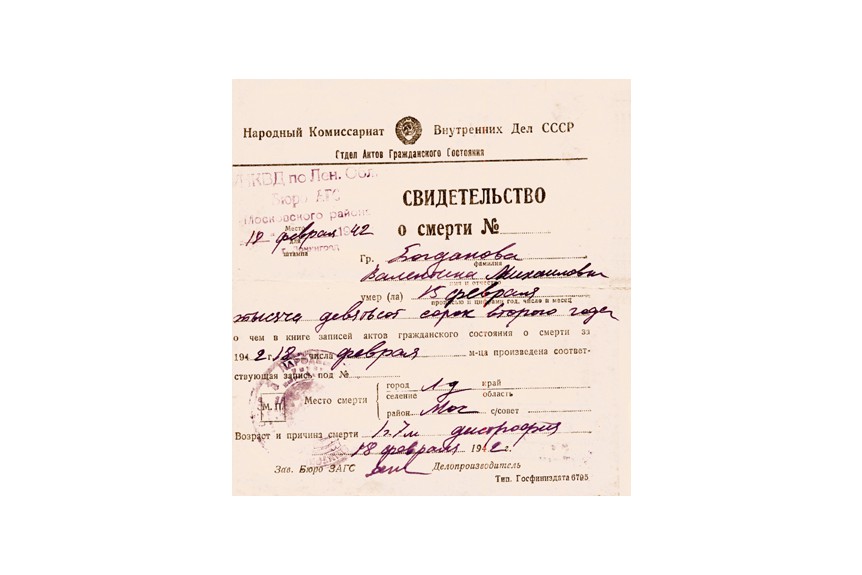 Народный Комиссариат Внутренних Дел СССР
Отдел Актов Гражданского Состояния
НКВД по Лен. Обл.
Бюро ЗАГС
Московского района
СВИДЕТЕЛЬСТВО
о смерти №
18 февраля 1942
Место для штампа
Гр. Богданова
фамилия
Валентина Михайловна
имя и отчество
умер (ла) 15 февраля
прописью и цифрами год, число и месяц
тысяча девятьсот сорок второго года
о чем в книге записей актов гражданского состояния о смерти за
1942 г. 18 числа февраля м-ца произведена соответ-
ствующая запись под №
Место смерти
город Лд край
селение область
район Мос с/совет
М. П.
Возраст и причина смерти 1г. 7м дистрофия
18 февраля 1942 г.
Зав. Бюро ЗАГС Делопроизводитель
Тип. Госфиниздата 6795